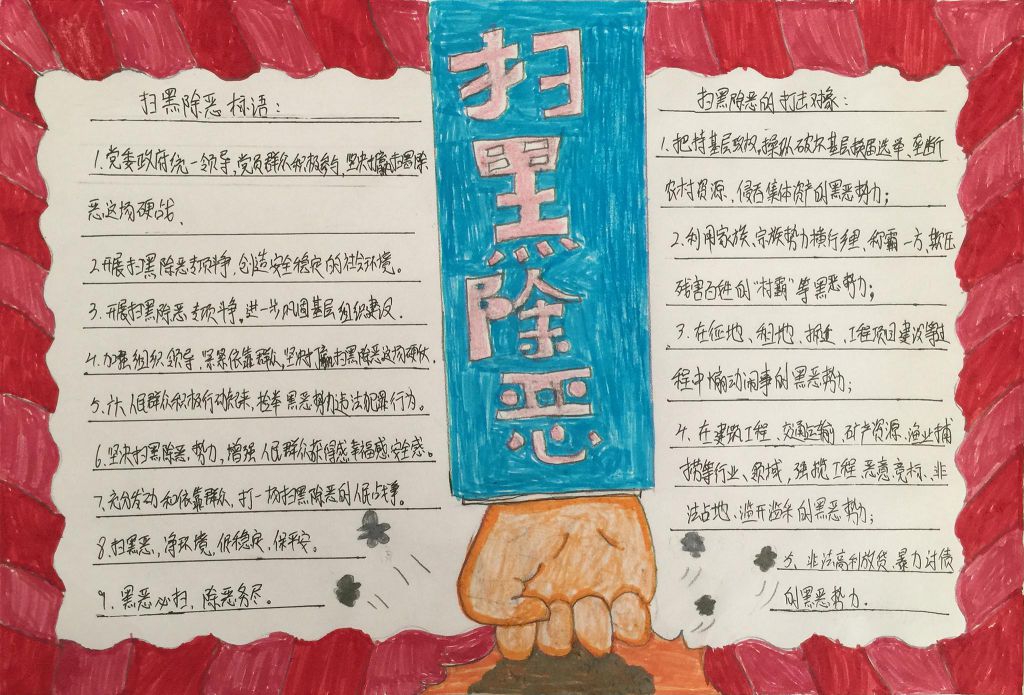 扫黑除恶
扫黑除恶标语：
1.党委政府统一领导，党员群众积极参与，坚决打赢扫黑除
恶这场硬战.
2.开展扫黑除恶专项斗争，创造安全稳定的社会环境。
3.开展扫黑除恶专项斗争，进一步巩固基层组织建设.
4.加强组织领导，紧紧依靠群众，坚决打赢扫黑除恶这场硬仗.
5.广大人民群众积极行动起来，检举黑恶势力违法犯罪行为。
6.坚决扫黑除恶势力，增强人民群众获得感幸福感安全感。
7.充分发动和依靠群众，打一场扫黑除恶的人民战争。
8.扫黑恶，净环境，促稳定，保平安。
9.黑恶必扫，除恶务尽。
扫黑除恶的打击对象：
1.把持基层政权，操纵破坏基层换届选举、垄断
农村资源、侵吞集体资产的黑恶势力；
2.利用家族、宗族势力横行乡里、称霸一方、欺压
残害百姓的“村霸”等黑恶势力；
3.在征地、租地、拆迁、工程项目建设等过
程中煽动闹事的黑恶势力；
4.在建筑工程、交通运输、矿产资源、渔业捕
捞等行业、领域，强揽工程、恶意竞标、非
法占地、滥开滥采的黑恶势力；
5、非法高利放贷、暴力讨债
的黑恶势力.